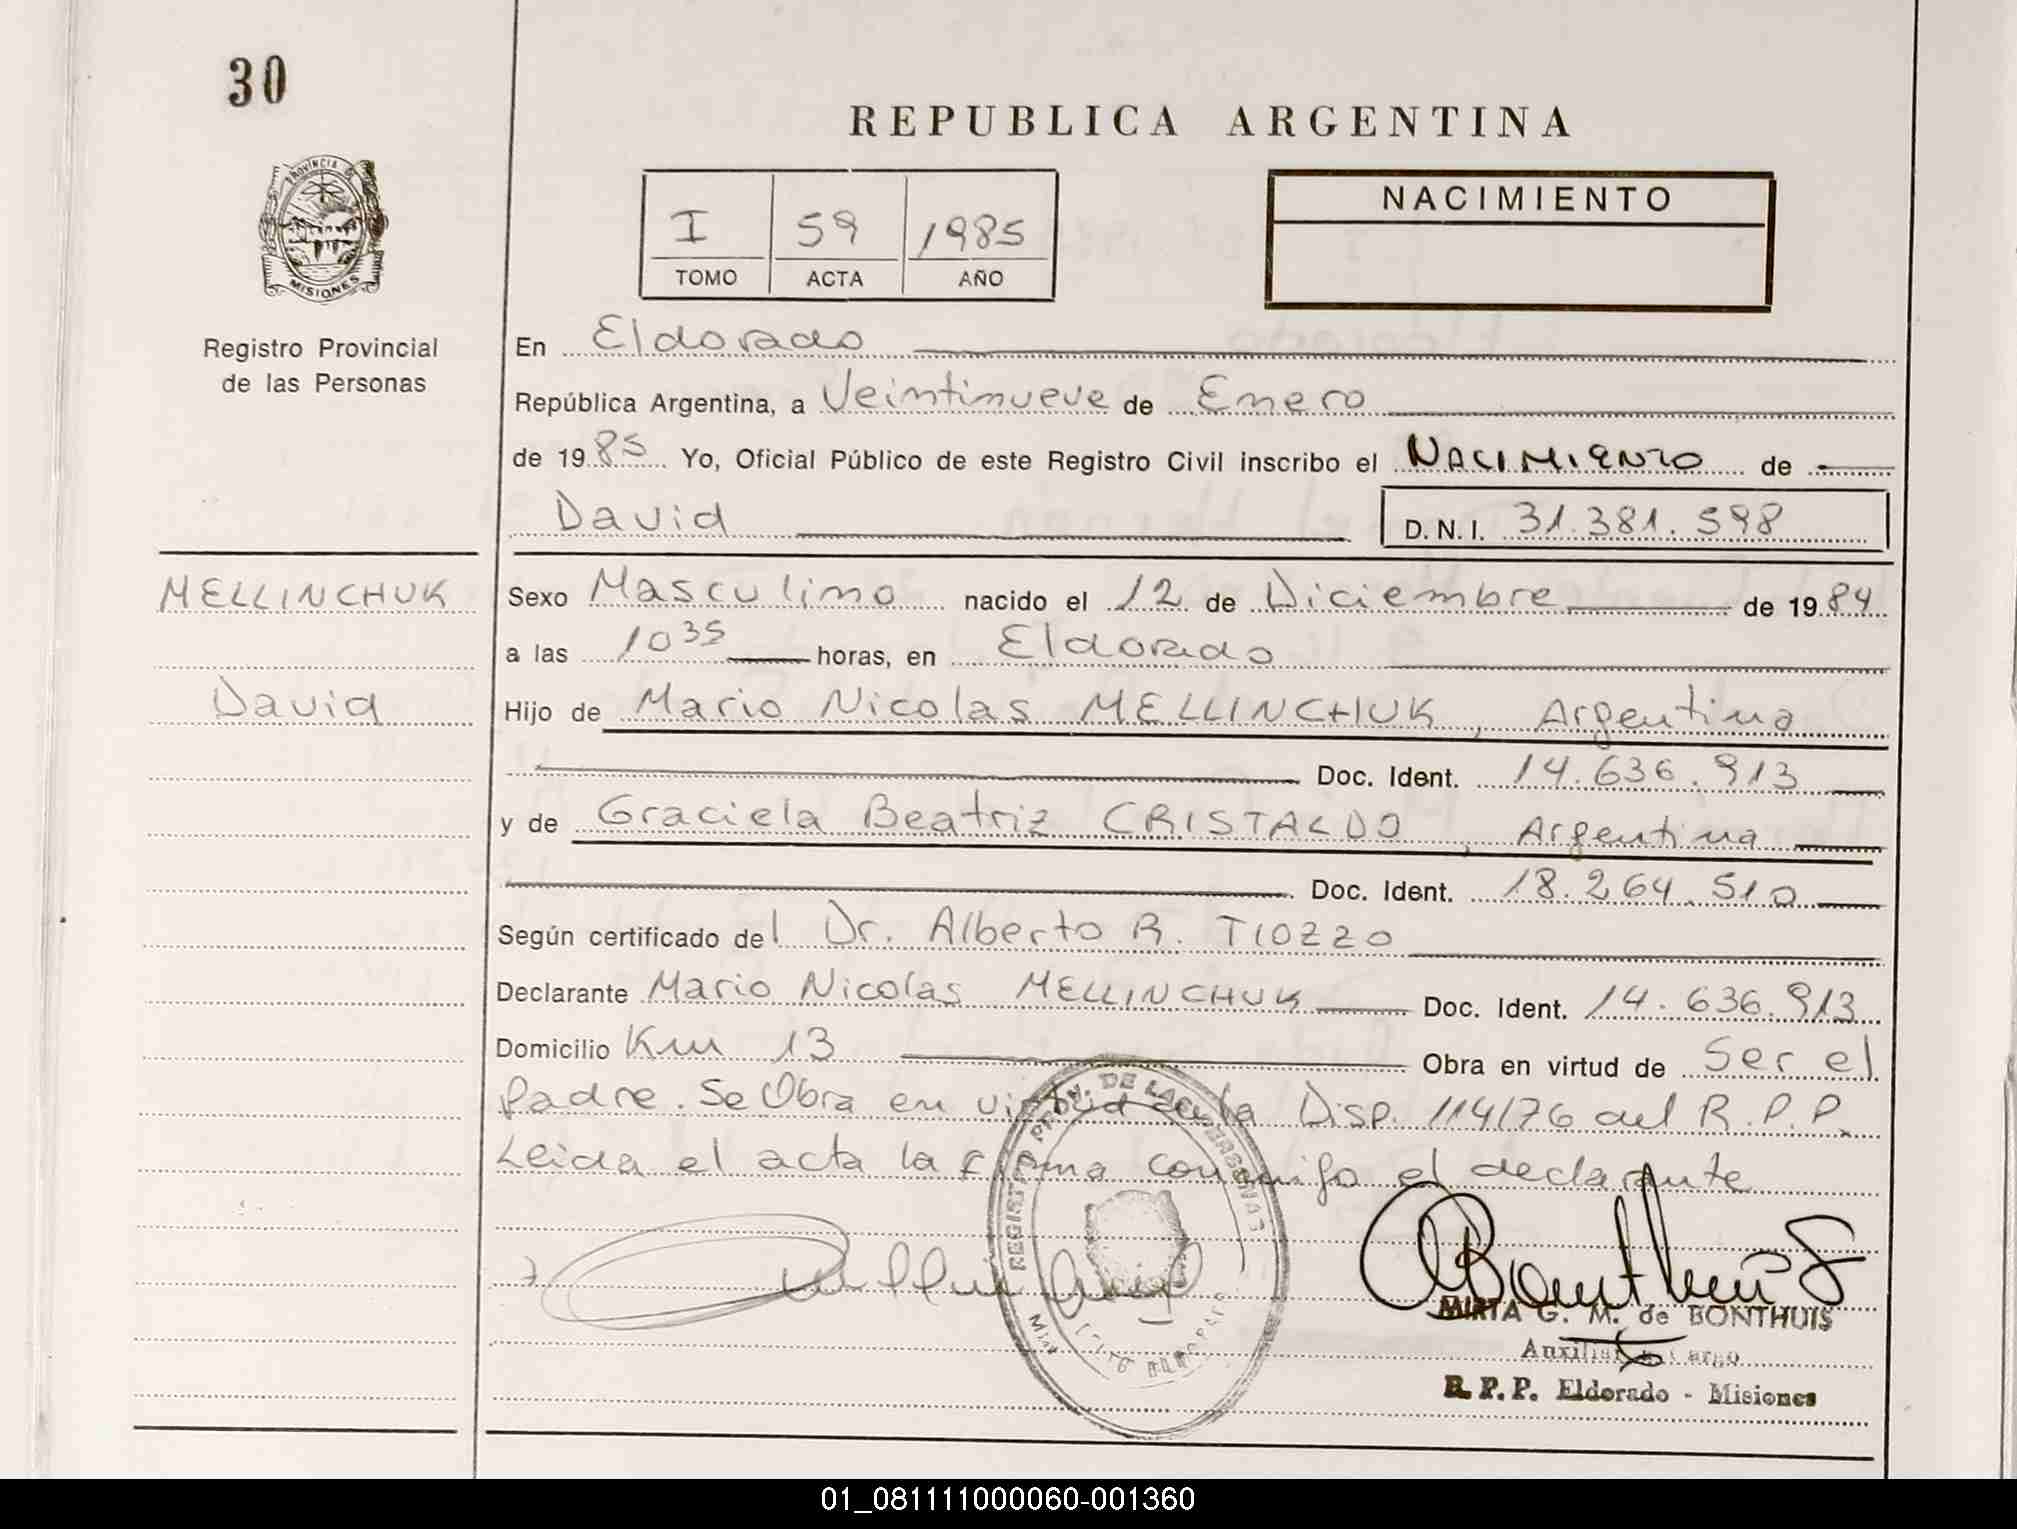 30
REPUBLICA ARGENTINA
PROVINCIA
MISIONES
Registro Provincial
de las Personas
I 59 1985
TOMO ACTA AÑO
NACIMIENTO
En Eldorado
República Argentina, a Veintinueve de Enero
de 1985 Yo, Oficial Público de este Registro Civil inscribo el NACIMIENTO de
David
D.N.I. 31.381.598
MELLINCHUK
David
Sexo Masculino nacido el 12 de Diciembre de 1984
a las 10 35 horas, en Eldorado
Hijo de Mario Nicolas MELLINCHUK, Argentino
Doc. Ident. 14.636.913
y de Graciela Beatriz CRISTALDO, Argentina
Doc. Ident. 18.264.510
Según certificado del Dr. Alberto R. TIOZZO
Declarante Mario Nicolas MELLINCHUK Doc. Ident. 14.636.913
Domicilio Km 13 Obra en virtud de Ser el
Padre. Se Obra en virtud de la Disp. 114/76 del R.P.P.
Leida el acta la firma conmigo el declarante
REGISTRO PROV. DE LAS PERSONAS
MIRTA G. M. de BONTHUIS
Auxiliar a Cargo
R.P.P. Eldorado - Misiones
01_081111000060-001360